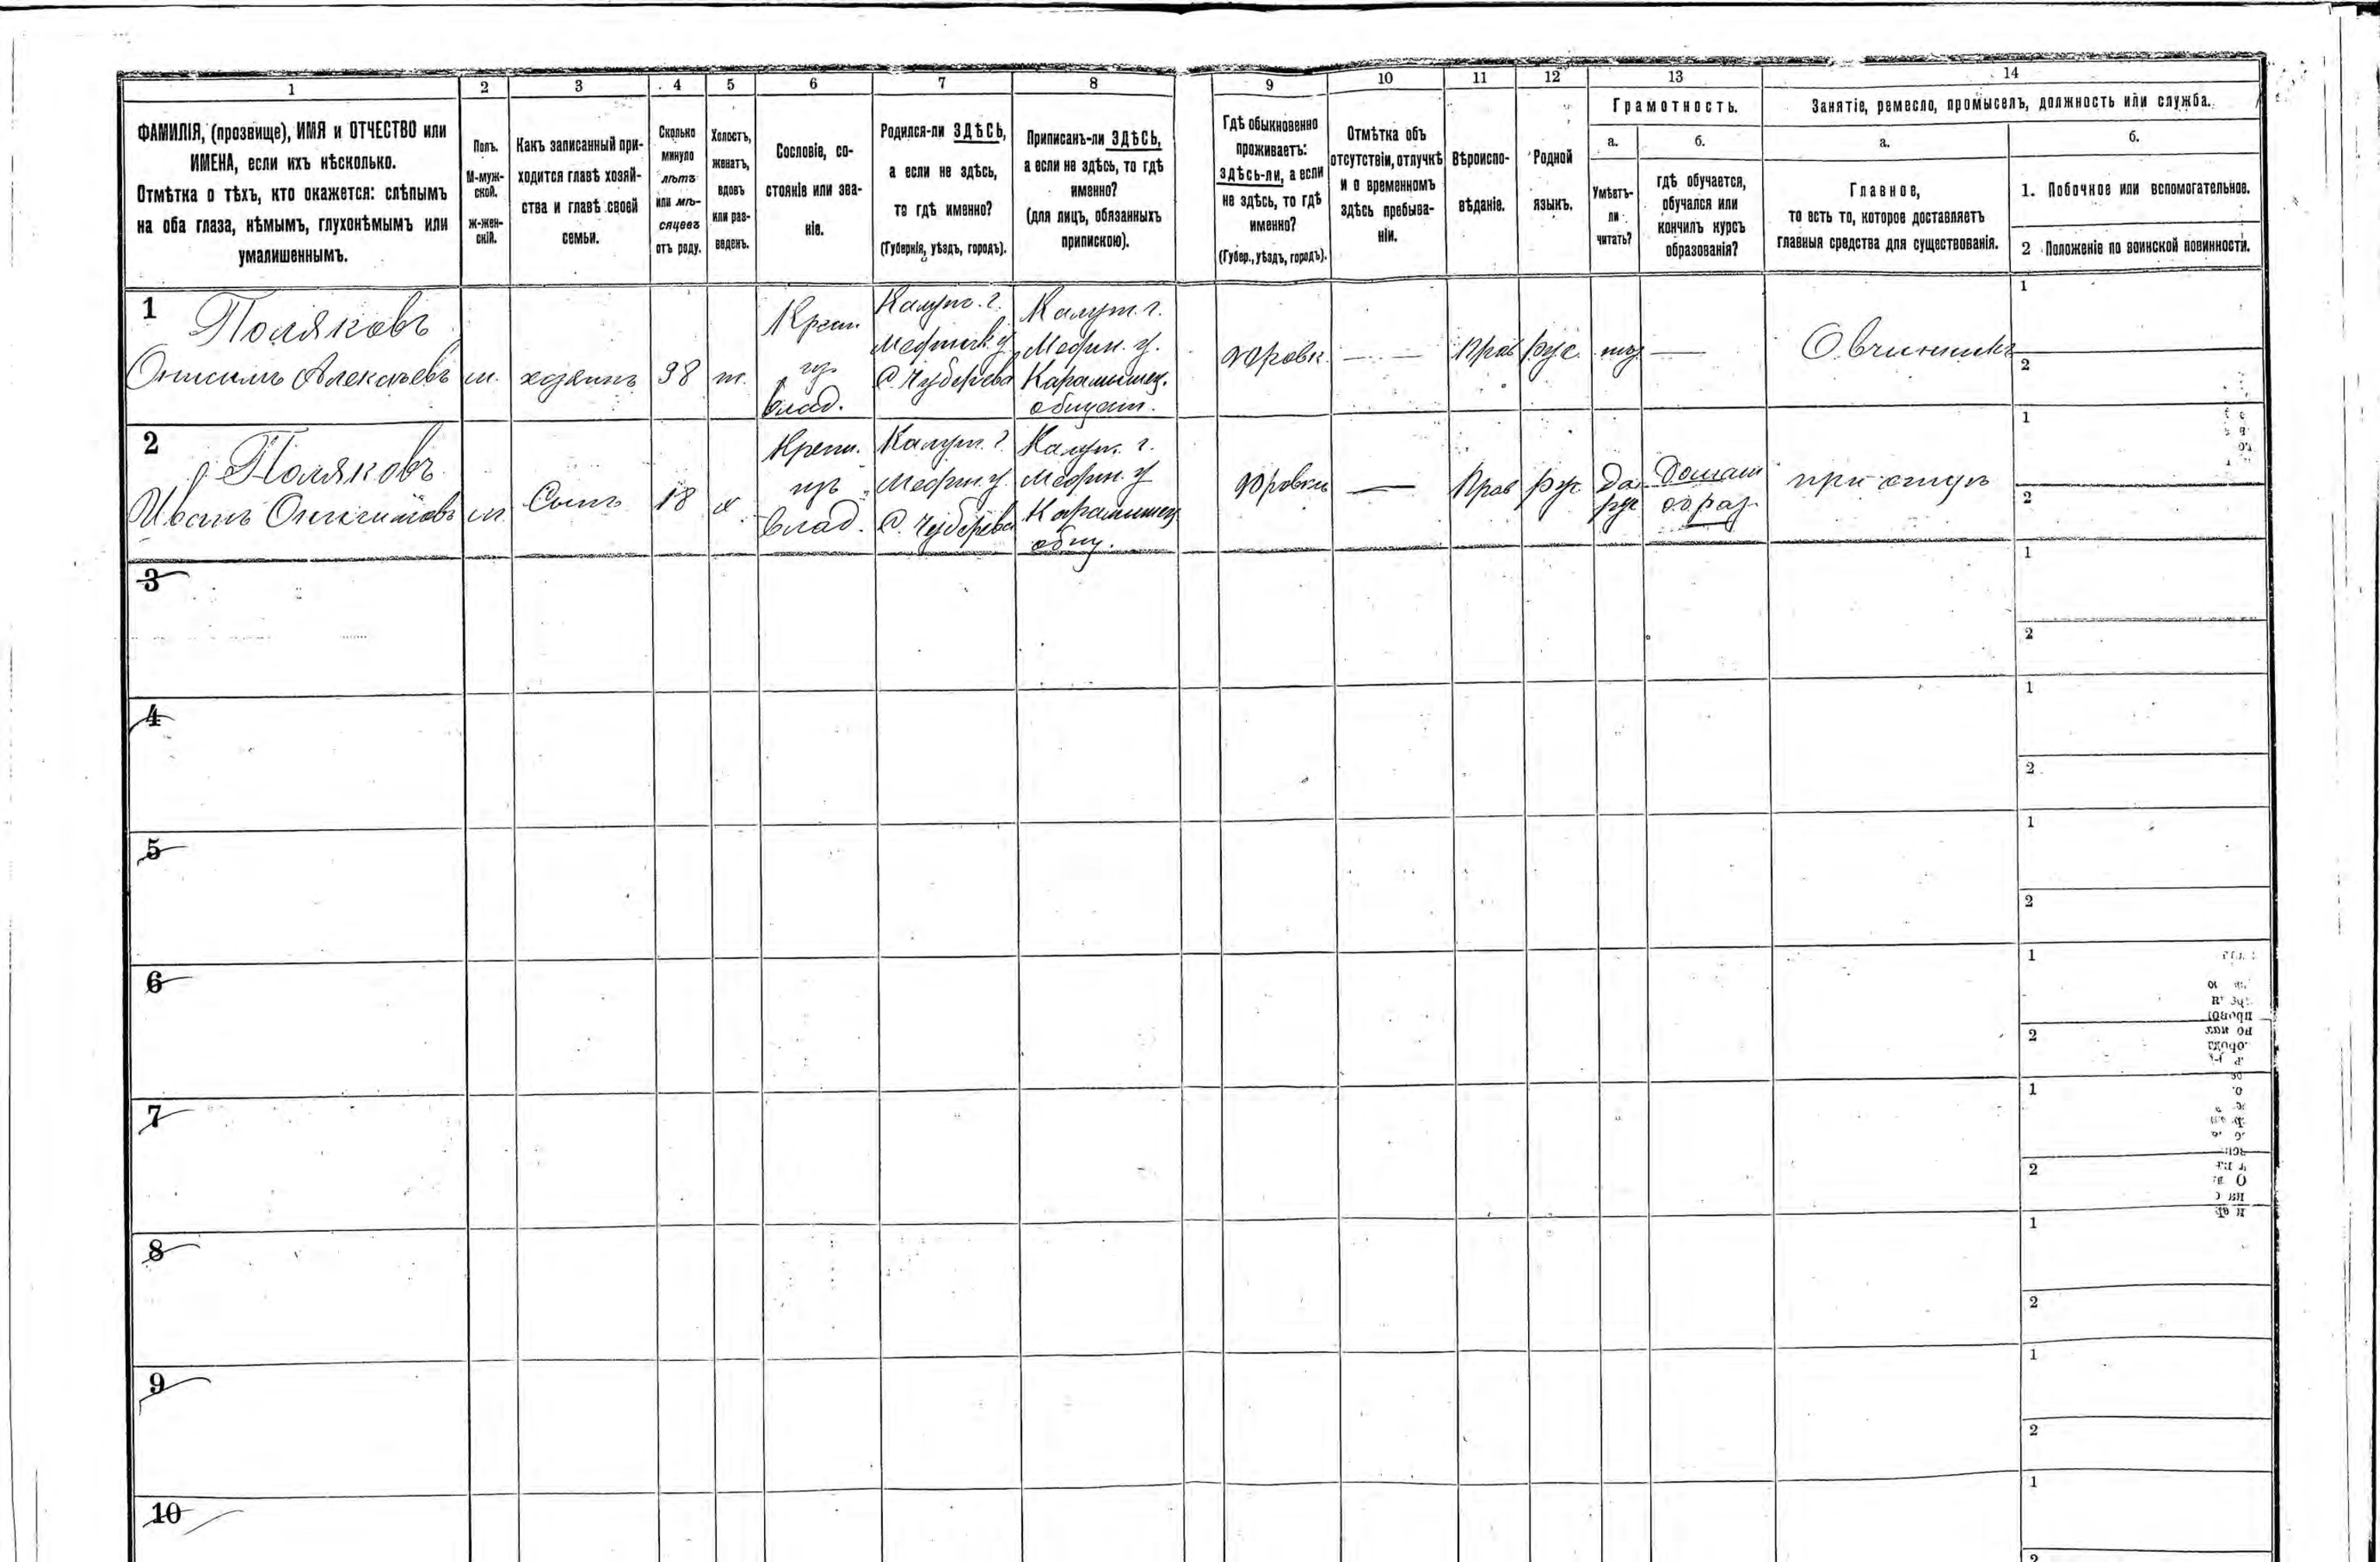 1 2 3 4 5 6 7 8 9 10 11 12 13 14
ФАМИЛІЯ, (прозвище), ИМЯ и ОТЧЕСТВО или
ИМЕНА, если ихъ нѣсколько.
Отмѣтка о тѣхъ, кто окажется: слѣпымъ
на оба глаза, нѣмымъ, глухонѣмымъ или
умалишеннымъ.
Полъ.
М-муж-
ской.
ж-жен-
скій.
Какъ записанный при-
ходится главѣ хозяй-
ства и главѣ своей
семьи.
Сколько
минуло
лѣтъ
или мѣ-
сяцевъ
отъ роду.
Холостъ,
женатъ,
вдовъ
или раз-
веденъ.
Сословіе, со-
стояніе или зва-
ніе.
Родился-ли ЗДѢСЬ,
а если не здѣсь,
то гдѣ именно?
(Губернія, уѣздъ, городъ).
Приписанъ-ли ЗДѢСЬ,
а если не здѣсь, то гдѣ
именно?
(для лицъ, обязанныхъ
припискою).
Гдѣ обыкновенно
проживаетъ:
здѣсь-ли, а если
не здѣсь, то гдѣ
именно?
(Губер., уѣздъ, городъ).
Отмѣтка объ
отсутствіи, отлучкѣ
и о временномъ
здѣсь пребыва-
ніи.
Вѣроиспо-
вѣданіе.
Родной
языкъ.
Грамотность.
а.
Умѣетъ-
ли
читать?
б.
гдѣ обучается,
обучался или
кончилъ курсъ
образованія?
Занятіе, ремесло, промыселъ, должность или служба.
а.
Главное,
то есть то, которое доставляетъ
главныя средства для существованія.
б.
1. Побочное или вспомогательное.
2 Положеніе по воинской повинности.
1
Поляковъ
Онисимъ Алексѣевъ
м.
хозяинъ
38
ж.
Крест.
изъ
влад.
Калуж. г.
Медынск. у
Калуж. г.
Медын. у.
общест.
Прав
рус.
Овчинникъ
1
2
2
Поляковъ
Иванъ Онисимовъ
м
Сынъ
18
х.
Крест.
изъ
влад.
Калуж. г
Медын. у.
Калуж. г.
Медын. у
общ.
Прав
рус
Да
рус
Домаш
образ.
при отцѣ
1
2
3
1
2
4
1
2
5
1
2
6
1
2
7
1
2
8
1
2
9
1
2
10
1
2